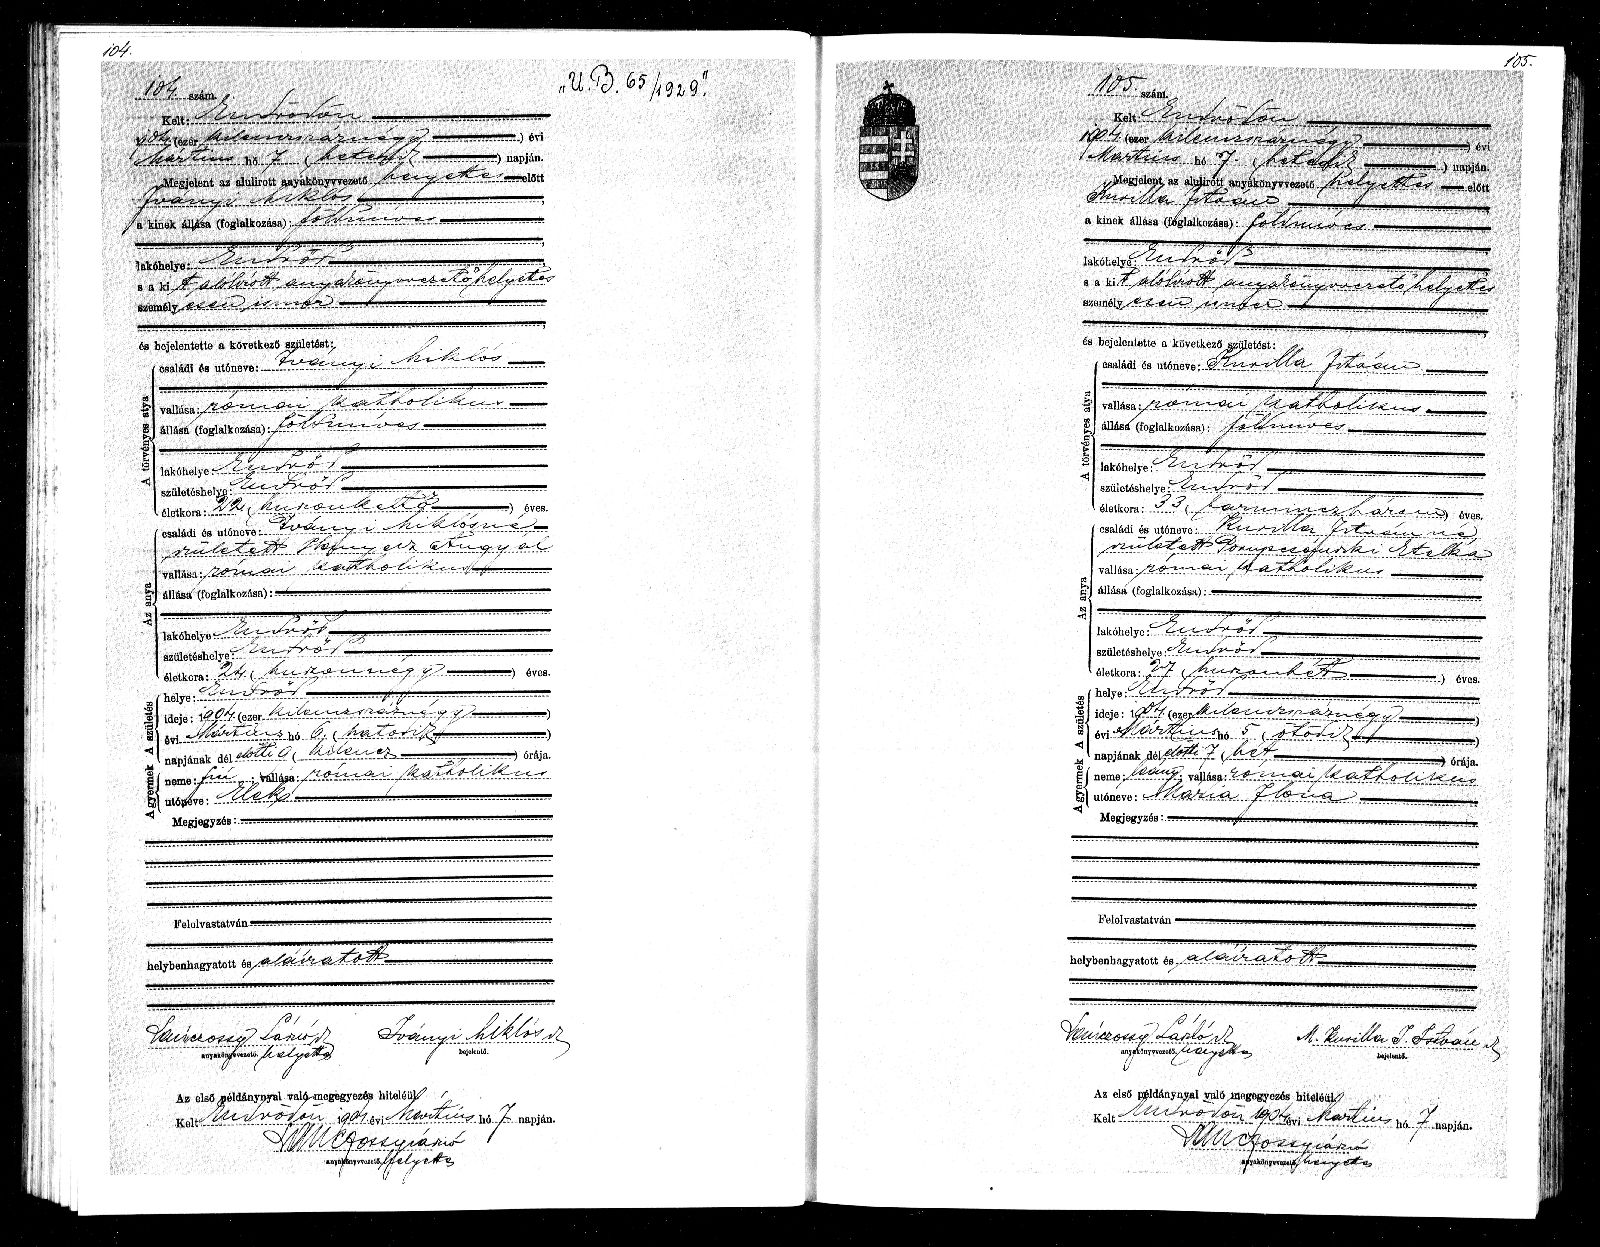 104.
104. szám.
"U.B. 65/1929."
Kelt: Endrődön
1904 (ezer kilenczszáznégy) évi
Martius hó 7 (hetedik) napján.
Megjelent az alulirott anyakönyvvezető helyettes előtt
Iványi Miklós
a kinek állása (foglalkozása): földmíves
lakóhelye: Endrőd
s a kit alólirott anyakönyvvezető helyettes
személyesen ismer
és bejelentette a következő születést:
A törvényes atya
családi és utóneve: Iványi Miklós
vallása: római katholikus
állása (foglalkozása): földmíves
lakóhelye: Endrőd
születéshelye: Endrőd
életkora: 22 (huszonkettő) éves.
Az anya
családi és utóneve: Iványi Miklósné
született Kenyerz Angyél
vallása: római katholikus
állása (foglalkozása):
lakóhelye: Endrőd
születéshelye: Endrőd
életkora: 24 (huszonnégy) éves.
A gyermek A születés
helye: Endrőd
ideje: 1904 (ezer kilenczszáznégy)
évi Mártius hó 6 (hatodik)
napjának dél előtti 9 (kilencz) órája.
neme: fiú; vallása: római katholikus
utóneve: Elek
Megjegyzés:
Felolvastatván
helybenhagyatott és aláiratott
anyakönyvvezető. helyettes
Iványi Miklós
bejelentő.
Az első példánynyal való megegyezés hiteléül
Kelt Endrődön 1904 évi Martius hó 7 napján.
anyakönyvvezető. helyettes
105.
105. szám.
Kelt: Endrődön
1904 (ezer kilenczszáznégy) évi
Martius hó 7. (hetedik) napján.
Megjelent az alulirott anyakönyvvezető helyettes előtt
Kurilla István
a kinek állása (foglalkozása): földmíves
lakóhelye: Endrőd
s a kit alólirott anyakönyvvezető helyettes
személyesen ismer
és bejelentette a következő születést:
A törvényes atya
családi és utóneve: Kurilla István
vallása: római katholikus
állása (foglalkozása): földmíves
lakóhelye: Endrőd
születéshelye: Endrőd
életkora: 33 (harminczhárom) éves.
Az anya
családi és utóneve: Kurilla Istvánné
született Etelka
vallása: római katholikus
állása (foglalkozása):
lakóhelye: Endrőd
születéshelye: Endrőd
életkora: 27 (huszonhét) éves.
A gyermek A születés
helye: Endrőd
ideje: 1904 (ezer kilenczszáznégy)
évi Mártius hó 5 (ötödik)
napjának dél előtti 7 (hét) órája.
neme: leány; vallása: római katholikus
utóneve: Mária Ilona
Megjegyzés:
Felolvastatván
helybenhagyatott és aláiratott
anyakönyvvezető. helyettes
M. Kurilla J. István
bejelentő.
Az első példánynyal való megegyezés hiteléül
Kelt Endrődön 1904 évi Martius hó 7 napján.
anyakönyvvezető. helyettes